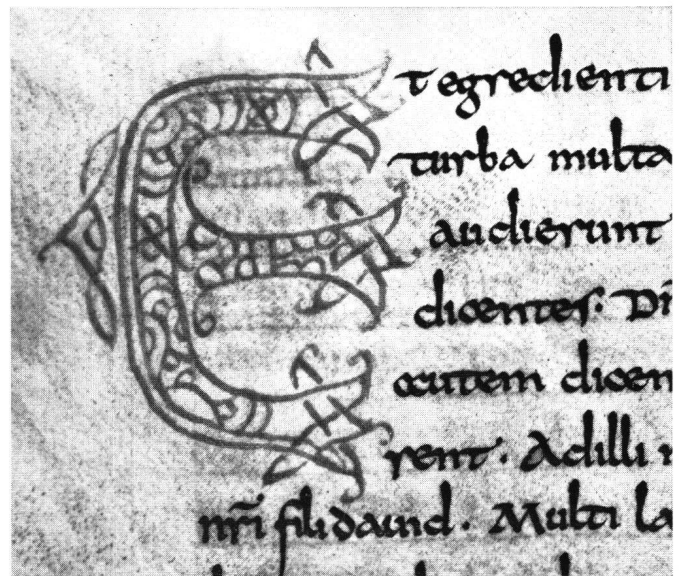 Et egredienti
turba multa
audierunt
dicentes.
autem dicen
rent. Ad illi
nr̄i fili dauid. Multi la